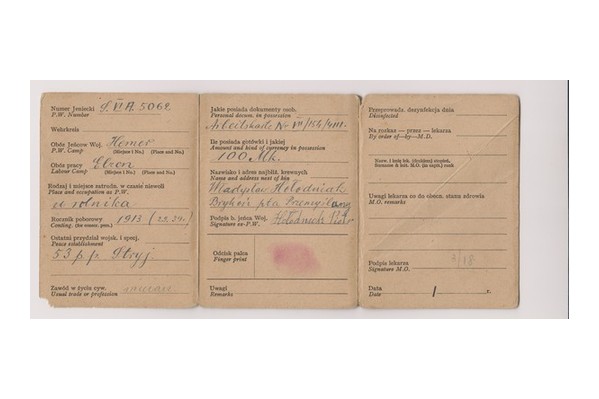 Numer Jeniecki S. VI A. 5062
P.W. Number
Wehrkreis
Obóz Jeńców Woj. Hemer
P.W. Camp (Miejsce i No.) (Place and No.)
Obóz pracy
Labour Camp (Miejsce i No.) (Place and No.)
Rodzaj i miejsce zatrudn. w czasie niewoli
Place and occupation as P.W.
u rolnika
Rocznik poborowy 1913
Conting.
Ostatni przydział wojsk. i specj.
Peace establishment
53 p.p. Stryj
Zawód w życiu cyw.
Usual trade or profession
Jakie posiada dokumenty osob.
Personal docum. in possession
Arbeitskarte Nr
Ile posiada gotówki i jakiej
Amount and kind of currency in possession
100 Mk.
Nazwisko i adres najbliż. krewnych
Name and address next of kin
Władysław Hołodniak
Podpis b. jeńca Woj.
Signature ex-P.W. Hołodniak
Odcisk palca
Finger print
Uwagi
Remarks
Przeprowadz. dezynfekcja dnia
Disinfected
Na rozkaz — przez — lekarza
By order of—by—M.D.
Uwagi lekarza co do obecn. stanu zdrowia
M.O. remarks
Podpis lekarza
Signature M.O.
3/18
Data r.
Date